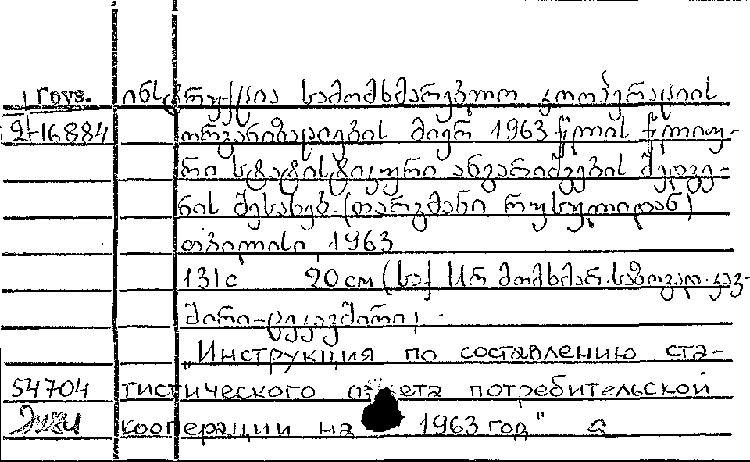 1 груз. ინსტრუქცია სამომხმარებლო კოოპერაციის
2-16884 ორგანიზაციების მიერ 1963 წლის წლიუ-
რი სტატისტიკური ანგარიშების შედგე-
ნის შესახებ. (თარგმანი რუსულიდან)
თბილისი, 1963
131с 20см (საქ. სსრ მომხმარ. საზოგად. კავ-
შირი-ცეკავშირი)
„Инструкция по составлению ста-
54704 тистического отчета потребительской
кооперации на 1963 год"